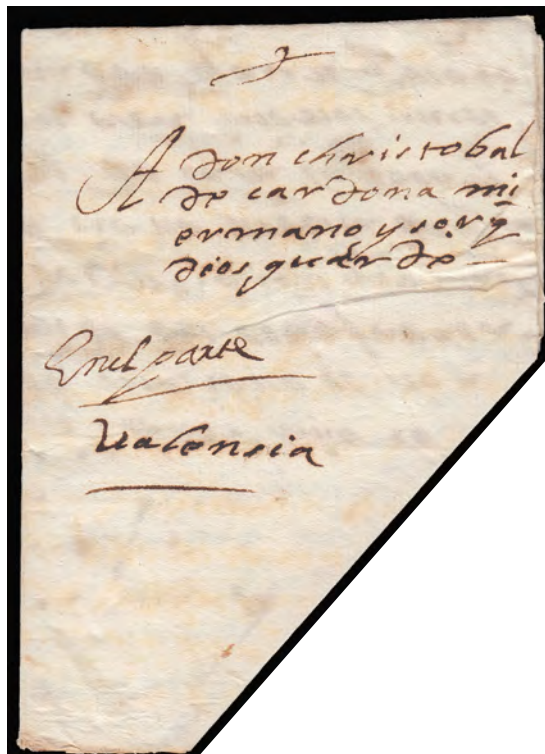 A don christobal
de cardona mi
ermano y sor. q̃
dios guarde
En el parte
Valensia